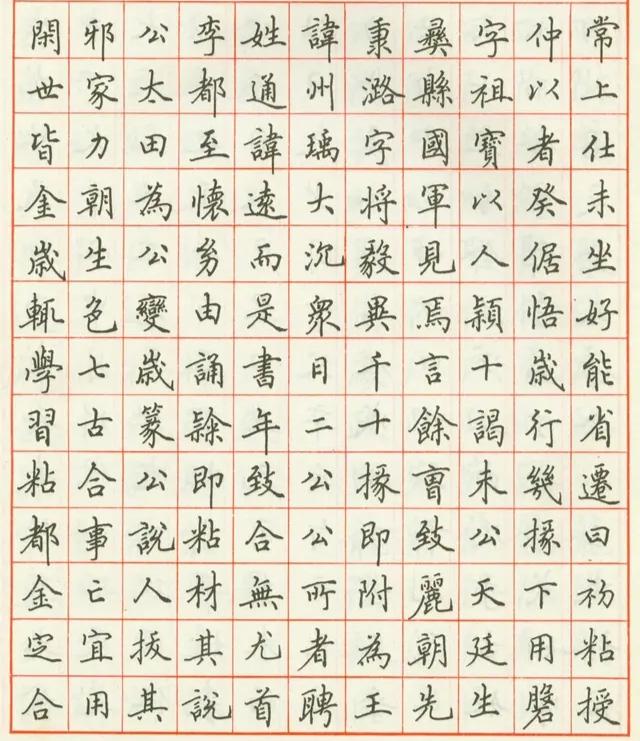 閑邪公李姓諱秉彝字仲常
世家太都通州潞縣祖以上
皆力田至諱瑀字國寶者仕
金朝為懷遠大将軍以癸未
歲生公幼而沉毅見人倨坐
輒色變由是衆異焉穎悟好
學七歲誦書日千言十歲能
習古篆隸年二十餘謁行省
粘合公即致公掾曹未幾遷
都事說粘合公即致公掾曰
金亡人材無所附麗天下初
定宜拔其尤者為朝廷用粘
合用其說首聘王先生膺授